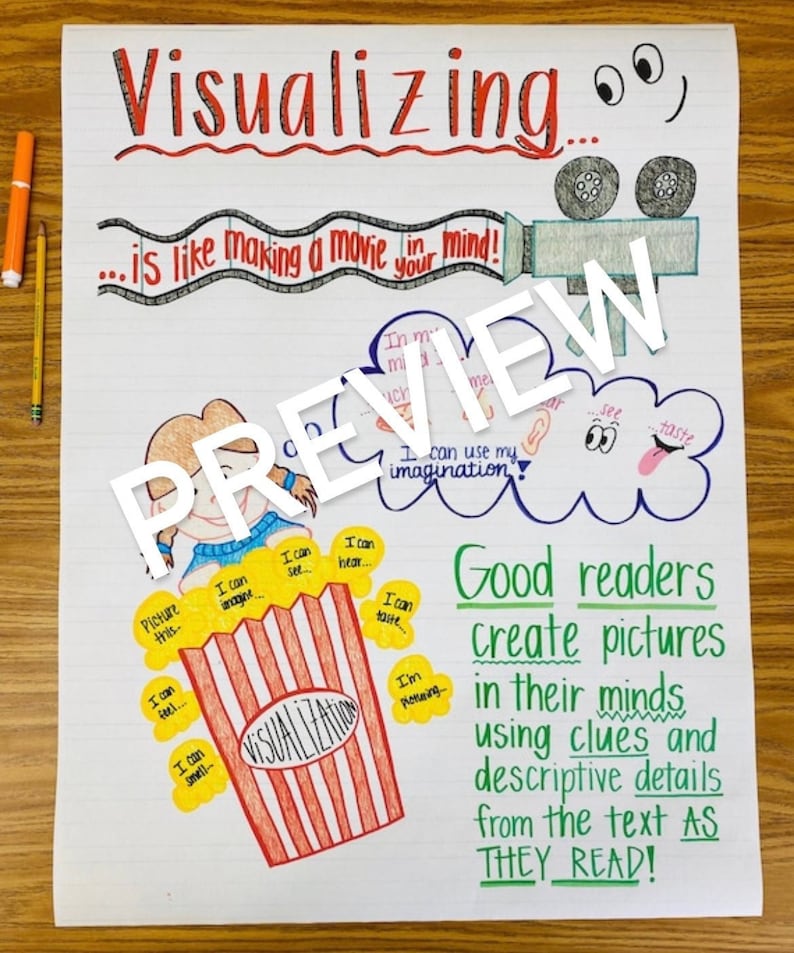 Visualizing...
...is like making a movie in your mind!
In my
mind I...
...see
...taste
I can use my
imagination!
PREVIEW
I can
see...
I can
hear...
I can
imagine...
I can
taste...
Picture
this...
I'm
picturing...
I can
feel...
I can
smell...
VISUALIZATION
Good readers
create pictures
in their minds
using clues and
descriptive details
from the text AS
THEY READ!